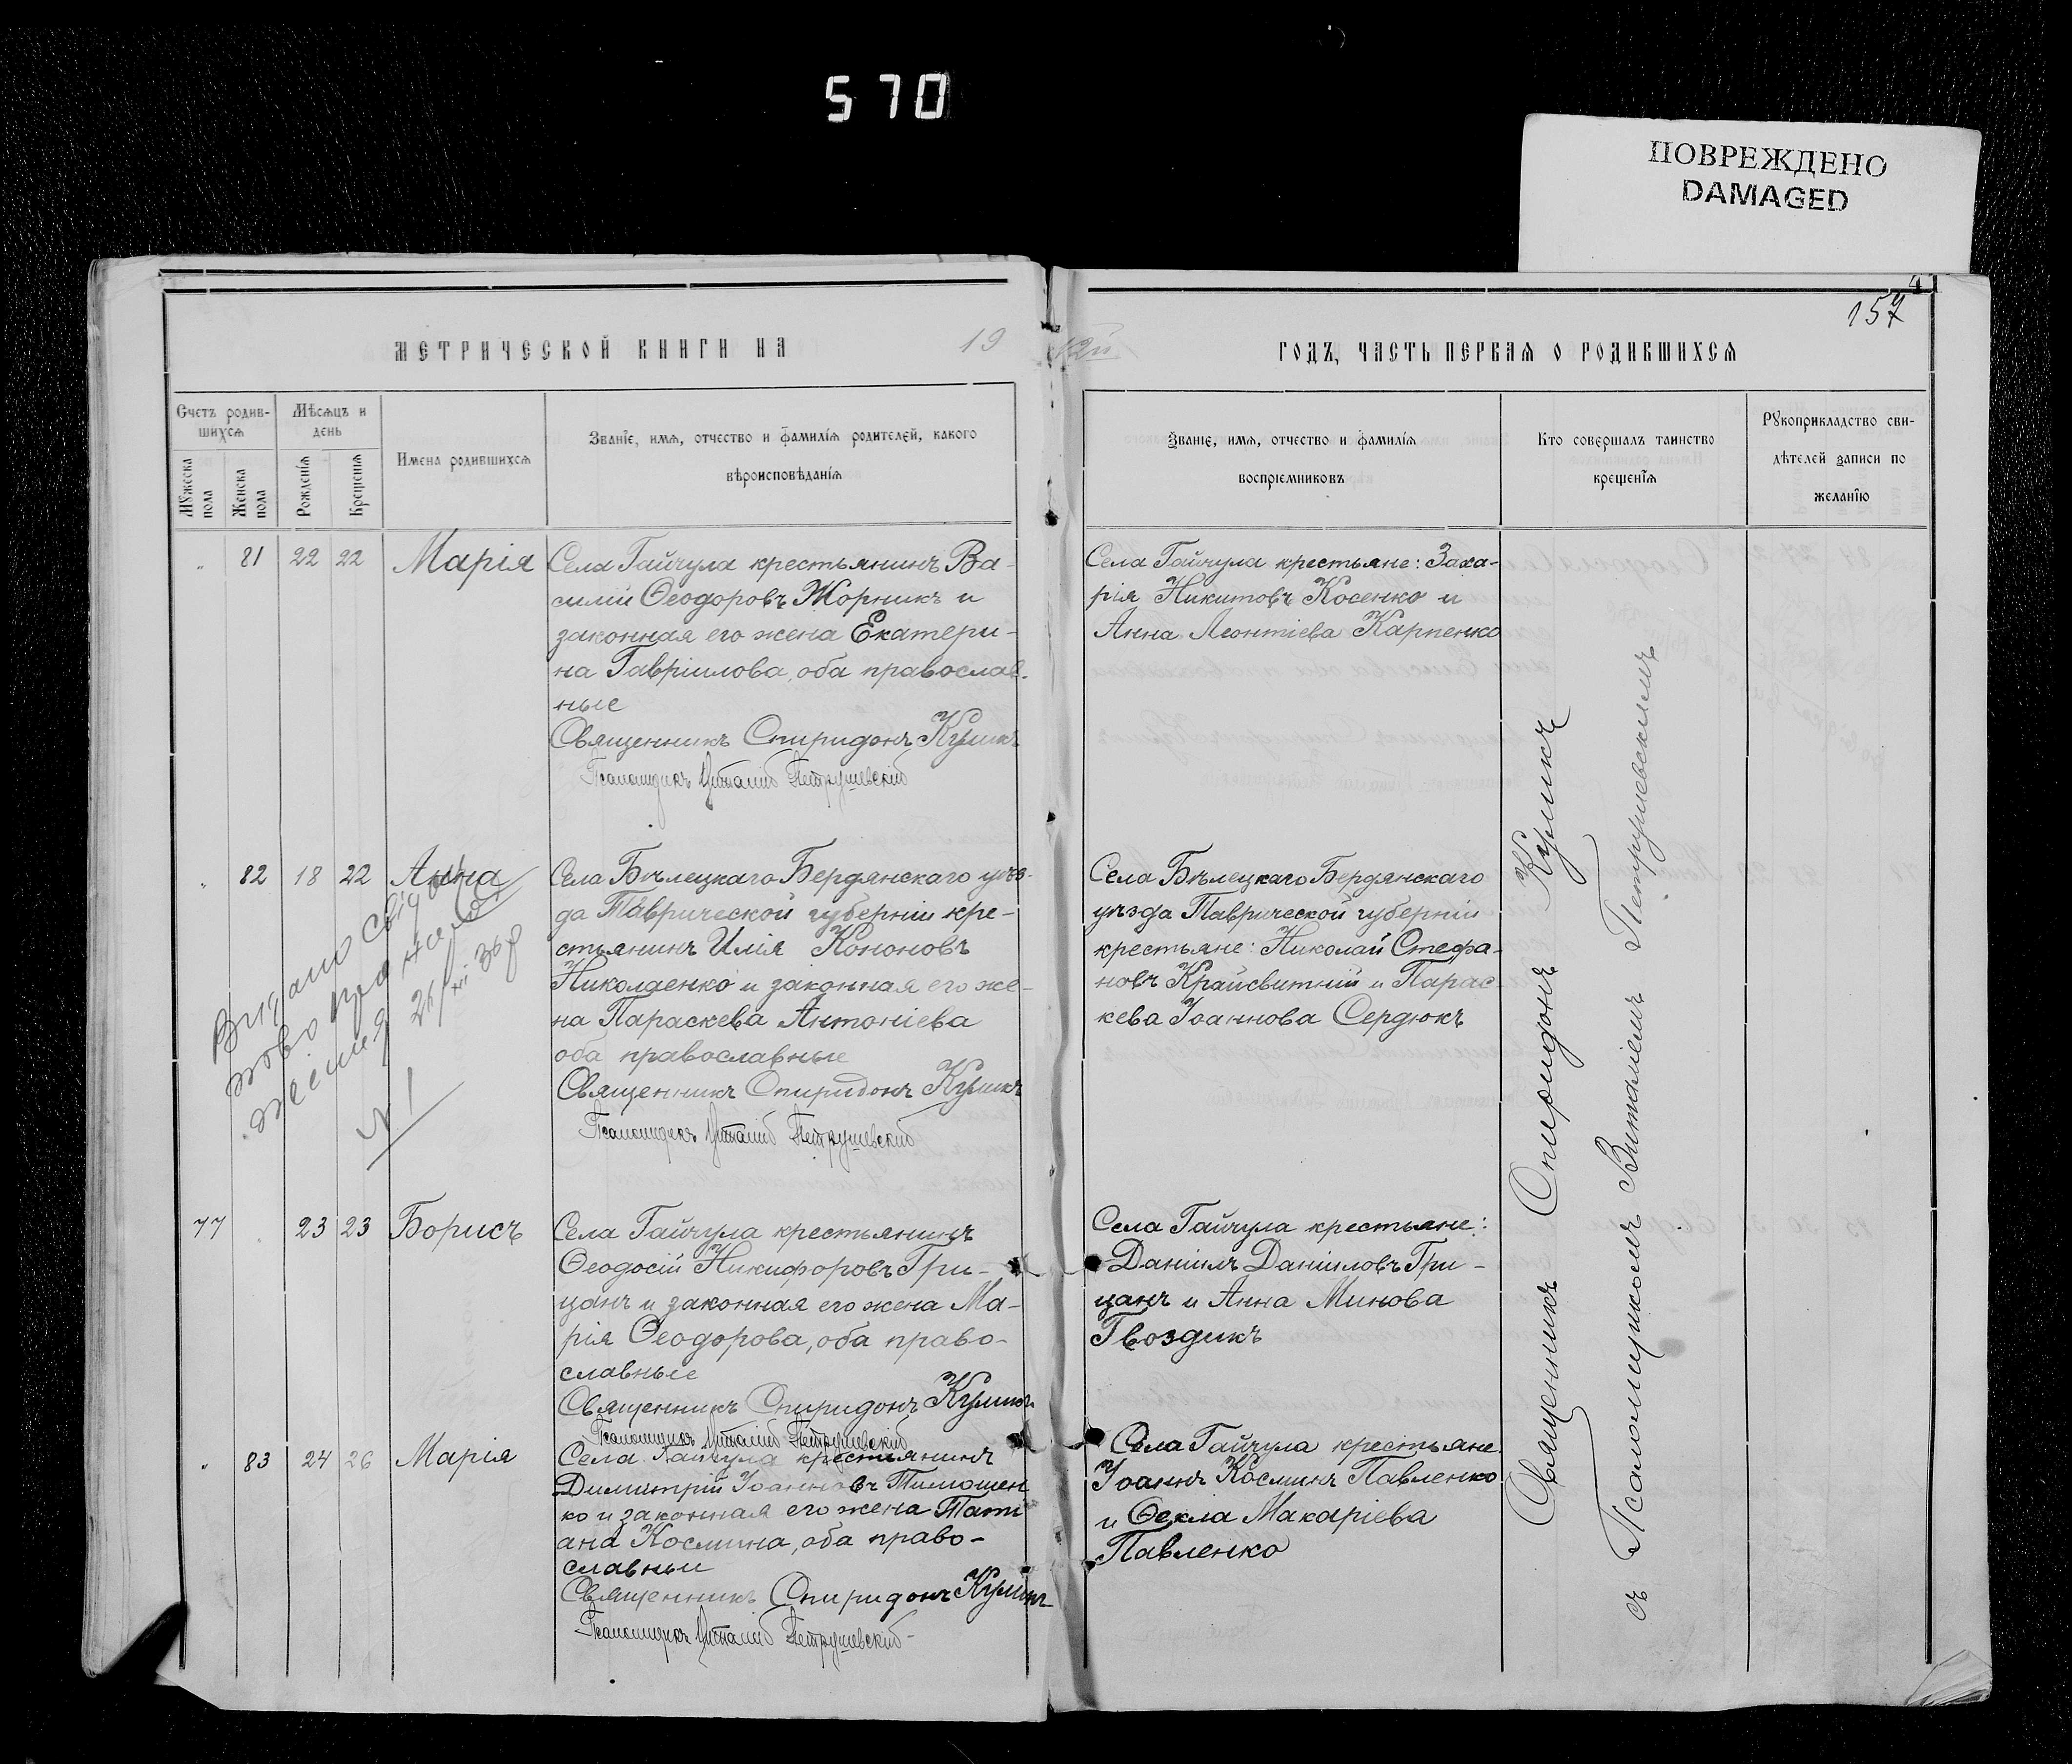 570
ПОВРЕЖДЕНО
DAMAGED
157
МЕТРИЧЕСКОЙ КНИГИ НА 19
12й ГОДЪ, ЧАСТЬ ПЕРВАЯ О РОДИВШИХСЯ
Счетъ родив-
шихся
Мѣсяцъ и
день
Мужеска
пола
Женска
пола
Рожденія
Крещенія
Имена родившихся
Званіе, имя, отчество и фамилія родителей, какого
вѣроисповѣданія
Званіе, имя, отчество и фамилія
воспріемниковъ
Кто совершалъ таинство
крещенія
Рукоприкладство сви-
дѣтелей записи по
желанію
81 22 22 Марія
Села Гайчула крестьянинъ Ва-
силій Ѳеодоровъ Жорникъ и
законная его жена Екатери-
на Гавріилова, оба православ-
ные
Священникъ Спиридонъ Куликъ
Псаломщикъ Виталій Петрушевскій
Села Гайчула крестьяне: Заха-
рія Никитовъ Косенко и
Анна Леонтіева Карпенко
82 18 22 Анна
Села Бѣлецкаго Бердянскаго уѣз-
да Таврической губерніи кре-
стьянинъ Илія Кононовъ
Николаенко и законная его же-
на Параскева Антоніева
оба православные
Священникъ Спиридонъ Куликъ
Псаломщикъ Виталій Петрушевскій
Села Бѣлецкаго Бердянскаго
уѣзда Таврической губерніи
крестьяне: Николай Стефа-
новъ Крайсвитній и Парас
кева Іоаннова Сердюкъ
Видано свідо
про
77 23 23 Борисъ
Села Гайчула крестьянинъ
Ѳеодосій Никифоровъ Гри-
цанъ и законная его жена Ма-
рія Ѳеодорова, оба право-
славные
Священникъ Спиридонъ Куликъ
Псаломщикъ Виталій Петрушевскій
Села Гайчула крестьяне:
Даніилъ Даніиловъ Гри-
цанъ и Анна Минова
Гвоздикъ
83 24 26 Марія
Села Гайчула крестьянинъ
Димитрій Іоанновъ Тимошен
ко и законная его жена Тати
ана Космина, оба право-
славныи
Священникъ Спиридонъ Куликъ
Псаломщикъ Виталій Петрушевскій
Села Гайчула крестьяне
Іоаннъ Косминъ Павленко
и Ѳекла Макаріева
Павленко
Священникъ Спиридонъ Куликъ
съ Псаломщикомъ Виталіемъ Петрушевскимъ